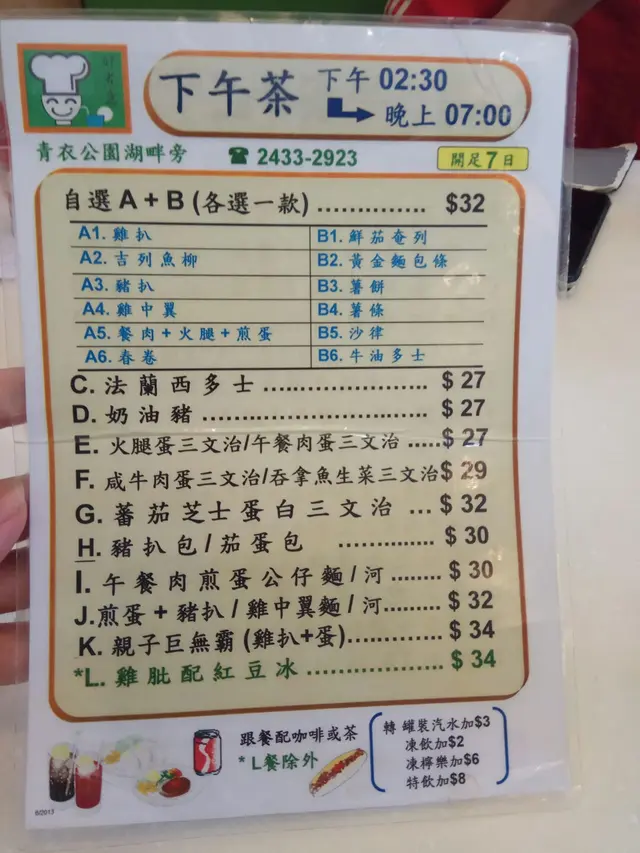 下午茶 下午 02:30
晚上 07:00
青衣公園湖畔旁 ☎ 2433-2923 開足7日
自選 A + B (各選一款) .............. $32
A1. 雞扒 B1. 鮮茄奄列
A2. 吉列魚柳 B2. 黃金麵包條
A3. 豬扒 B3. 薯餅
A4. 雞中翼 B4. 薯條
A5. 餐肉 + 火腿 + 煎蛋 B5. 沙律
A6. 春卷 B6. 牛油多士
C. 法蘭西多士 ..................... $ 27
D. 奶油豬 ............................. $ 27
E. 火腿蛋三文治/午餐肉蛋三文治 .....$ 27
F. 咸牛肉蛋三文治/吞拿魚生菜三文治$ 29
G. 蕃茄芝士蛋白三文治 ... $ 32
H. 豬扒包 / 茄蛋包 .............. $ 30
I. 午餐肉煎蛋公仔麵 / 河 ......... $ 30
J.煎蛋 + 豬扒 / 雞中翼麵 / 河.......... $ 32
K. 親子巨無霸 (雞扒+蛋)............... $ 34
*L. 雞肶配紅豆冰 ..................... $ 34
跟餐配咖啡或茶
* L餐除外
轉 罐裝汽水加$3
凍飲加$2
凍檸樂加$6
特飲加$8
6/2013